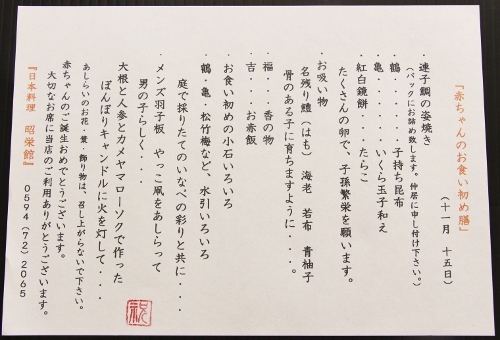 『赤ちゃんのお食い初め膳』
(十一月 十五日)
・連子鯛の姿焼き
(パックにお詰め致します。仲居に申し付け下さい。)
・鶴・・・・・子持ち昆布
・亀・・・・・いくら玉子和え
・紅白鏡餅・・・・たらこ
たくさんの卵で、子孫繁栄を願います。
・お吸い物
名残り鱧(はも) 海老 若布 青柚子
骨のある子に育ちますように・・・。
・福・・・香の物
・吉・・・お赤飯
・お食い初めの小石いろいろ
・鶴、亀、松竹梅など、水引いろいろ
庭で採りたてのいなべの彩りと共に・・・
・メンズ羽子板 やっこ凧をあしらって
男の子らしく・・・
大根と人参とカメヤマローソクで作った
ぼんぼりキャンドルに火を灯して・・・
あしらいのお花・葉・飾り物は、召し上がらないで下さい。
赤ちゃんのご誕生おめでとうございます。
大切なお席に当店のご利用ありがとうございます。
『日本料理 昭栄館』 0594(72)2065
祝